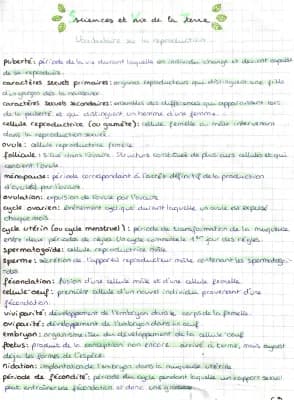 Sciences et Vie de la Terre
Vocabulaire sur la reproduction
puberté: période de la vie durant laquelle un individu change et devient capable
de se reproduire.
caractères sexuels primaires: organes reproducteurs qui distinguent une fille
d'un garçon dès la naissance
caractères sexuels secondaires: ensemble des différences qui apparaissent lors
de la puberté et qui distinguent un homme d'une femme.
cellule reproductrice (ou gamète): cellule femelle ou mâle intervenant
dans la reproduction sexuée.
ovule: cellule reproductrice femelle
follicule: situé dans l'ovaire. Structure constituée de plusieurs cellules et qui
contient l'ovule.
ménopause: période correspondant à l'arrêt définitif de la production
d'ovules par l'ovaire
ovulation: expulsion de l'ovule par l'ovaire
cycle ovarien: événement cyclique durant laquelle un ovule est expulsé
chaque mois
cycle utérin (ou cycle menstruel): période de transformation de la muqueuse
entre deux périodes de règles. Un cycle commence le 1er jour des règles.
spermatozoïde: cellule reproductrice mâle
sperme: sécrétion de l'appareil reproducteur mâle contenant les spermatozo-
fécondation: fusion d'une cellule mâle et d'une cellule femelle
cellule-oeuf: première cellule d'un nouvel individu provenant d'une
fécondation.
viviparité: développement de l'embryon dans le corps de la femelle.
oviparité: développement de l'embryon dans un oeuf
embryon: organisme issu du développement de la cellule-oeuf
foetus: produit de la conception non encore arrivé à terme, mais ayant
déjà les formes de l'espèce
nidation: implantation de l'embryon dans la muqueuse utérine
période de fécondité: période du cycle pendant laquelle un rapport sexuel
peut entraîner une fécondation et donc une grossesse